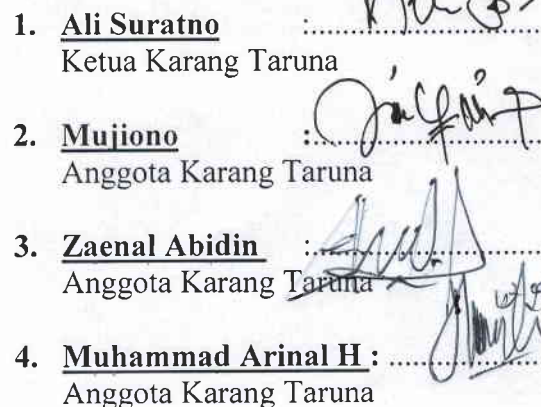 1. Ali Suratno :..............................
Ketua Karang Taruna
2. Mujiono :..............................
Anggota Karang Taruna
3. Zaenal Abidin :..............................
Anggota Karang Taruna
4. Muhammad Arinal H : ....................
Anggota Karang Taruna